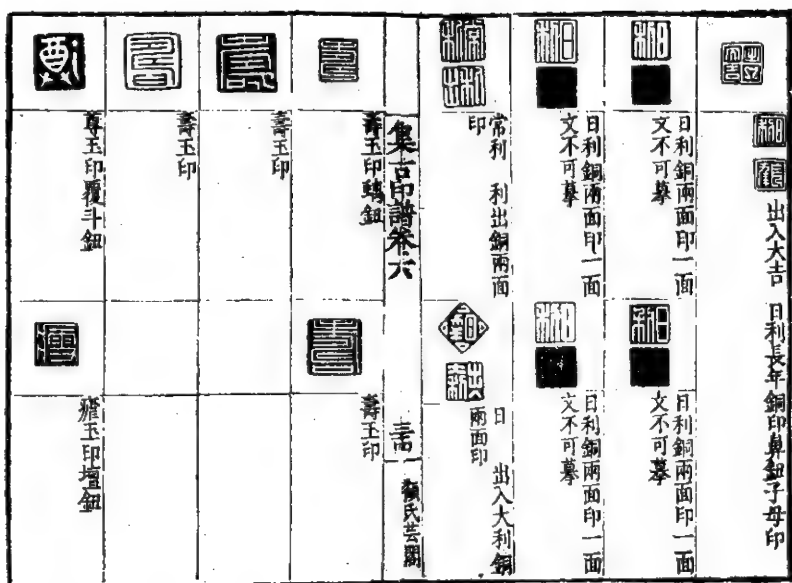 出入大吉 日利長年銅印鼻鈕子母印
日利銅兩面印一面
文不可摹
日利銅兩面印一面
文不可摹
日利銅兩面印一面
文不可摹
日利銅兩面印一面
文不可摹
常利 利出銅兩面
印
日 出入大利銅
兩面印
集古印譜卷六
顧氏芸閣
壽玉印螭鈕
壽玉印
壽玉印
壽玉印
尊玉印覆斗鈕
玉印壇鈕